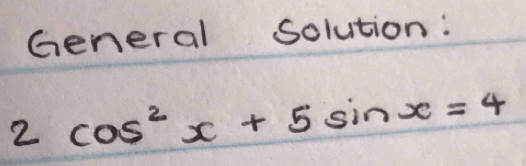 General Solution:
2 cos² x + 5 sin x = 4